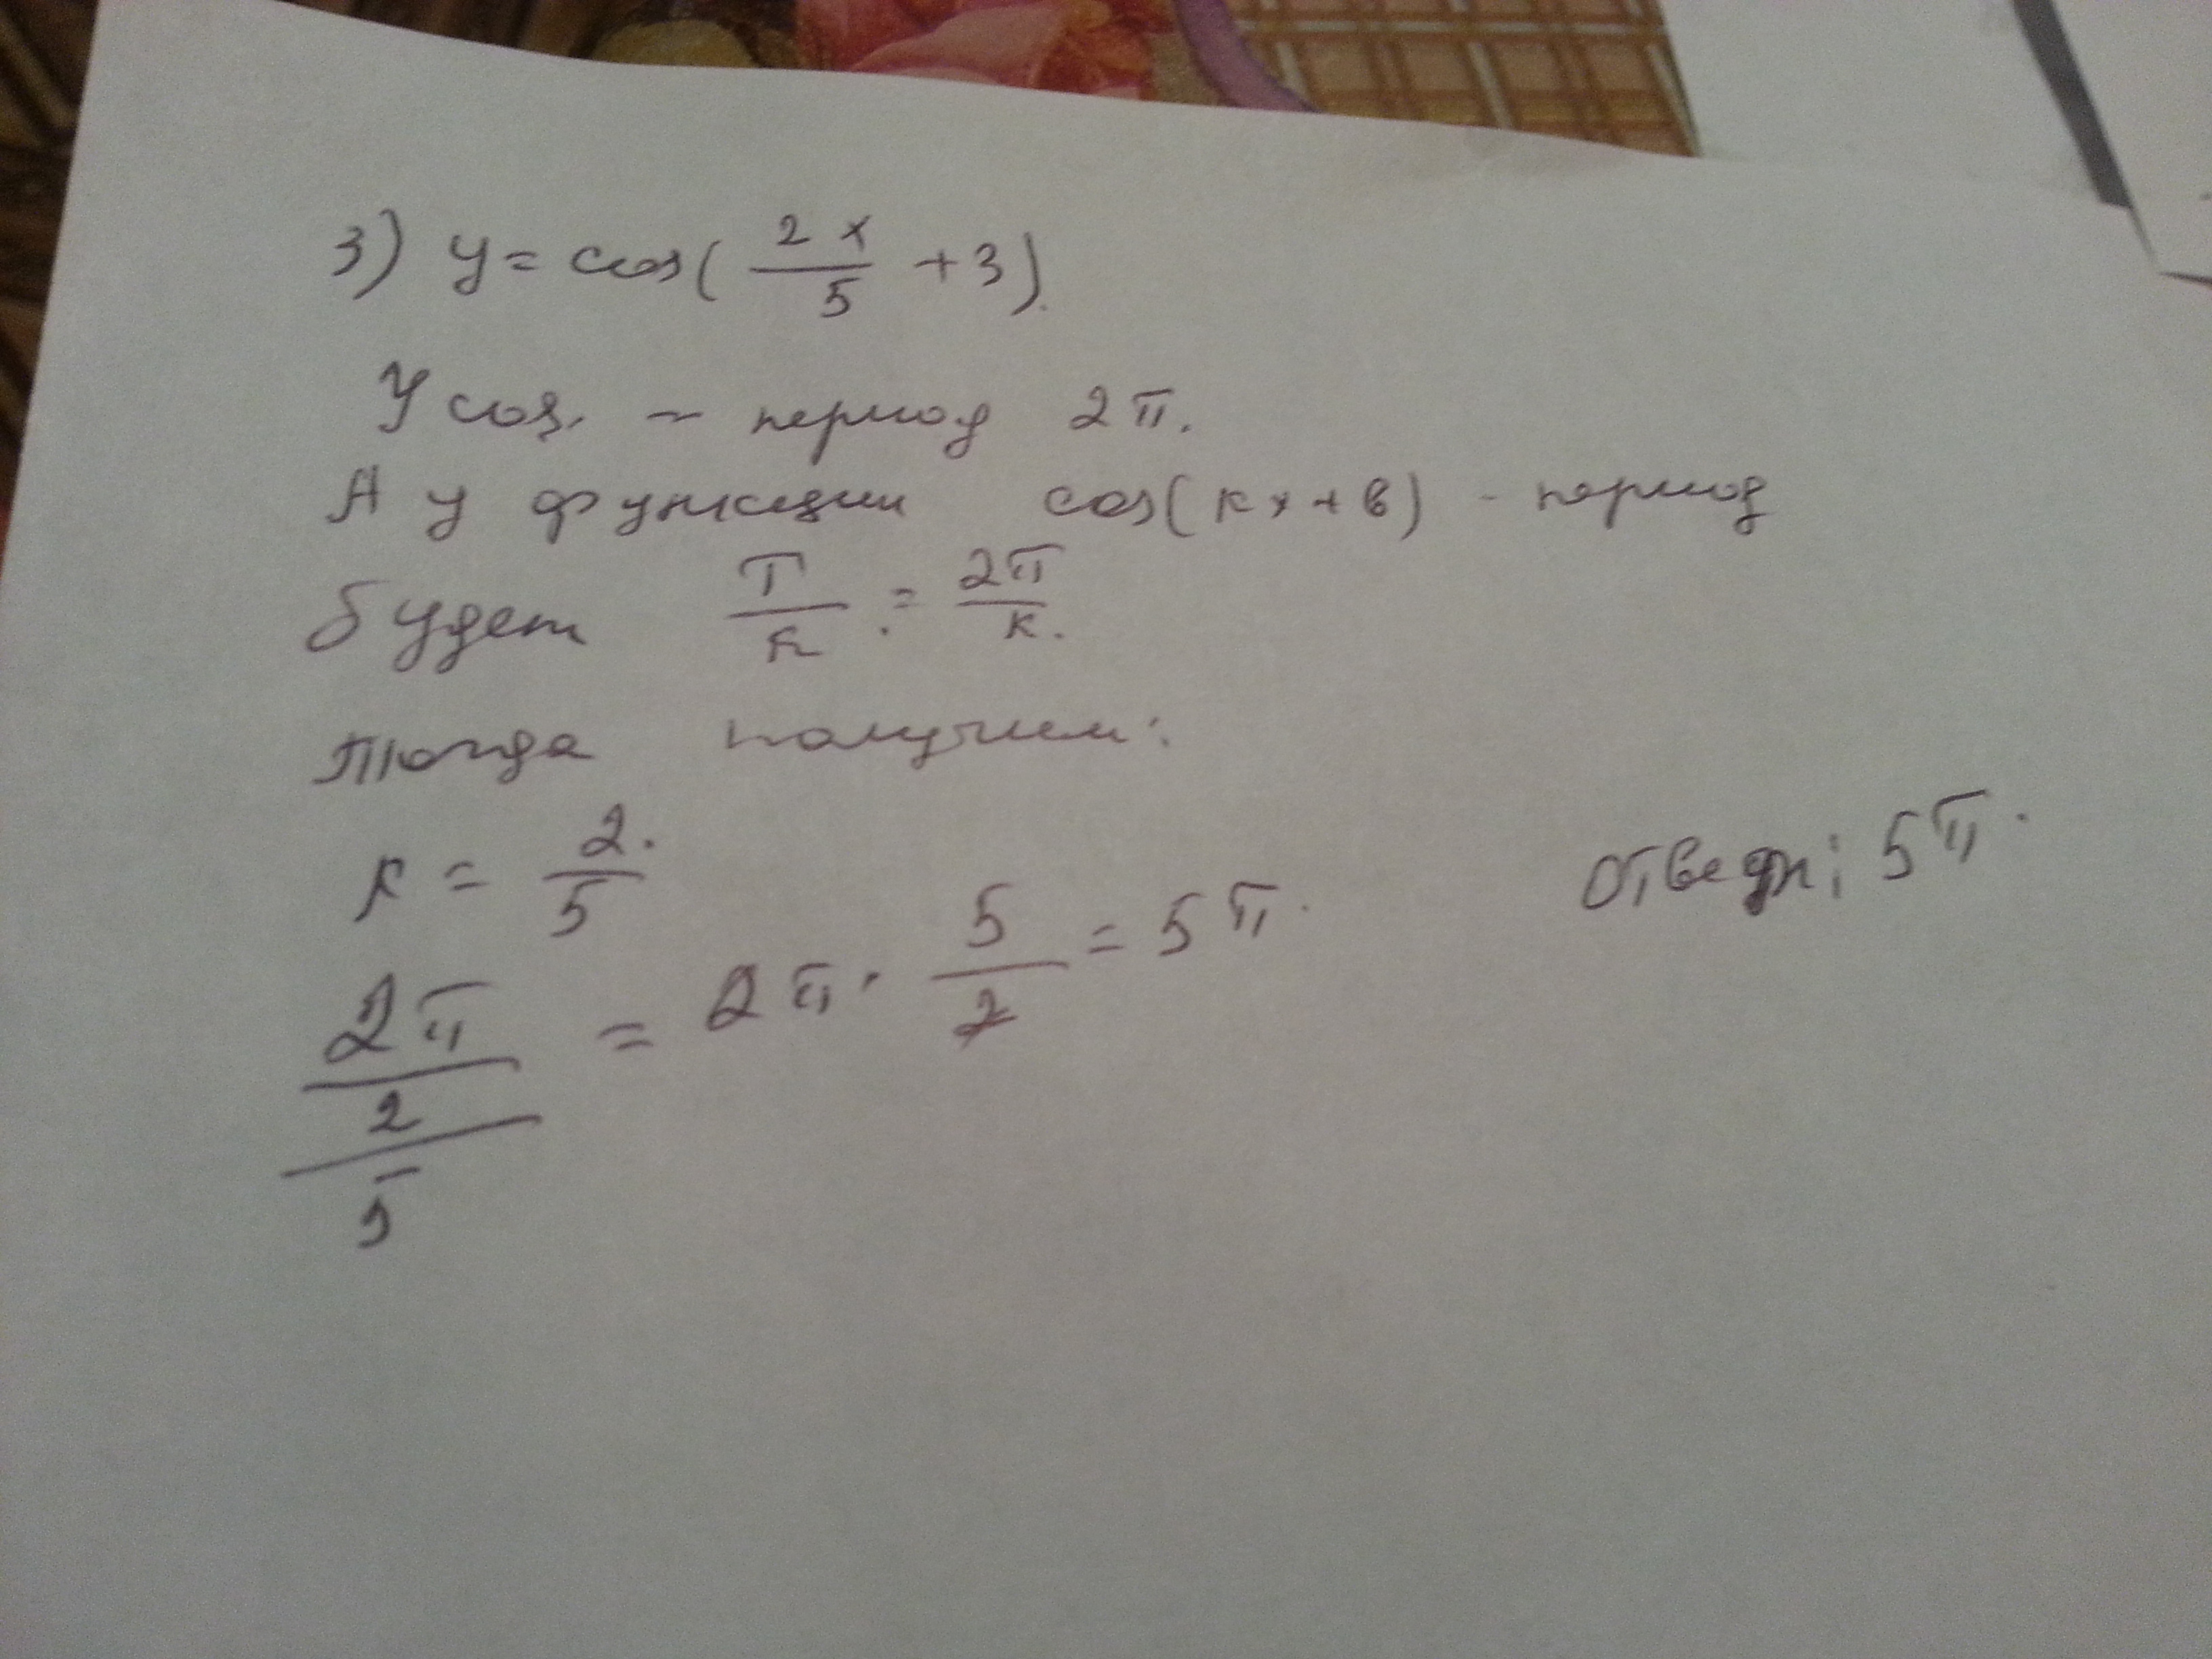 3) y = cos(2x/5 + 3).
У cos. – период 2π.
А у функции cos(kx+b) - период
будет T/k. = 2π/k.
Тогда получим:
k = 2/5.
2π/(2/5) = 2π · 5/2 = 5π.
Ответ: 5π.